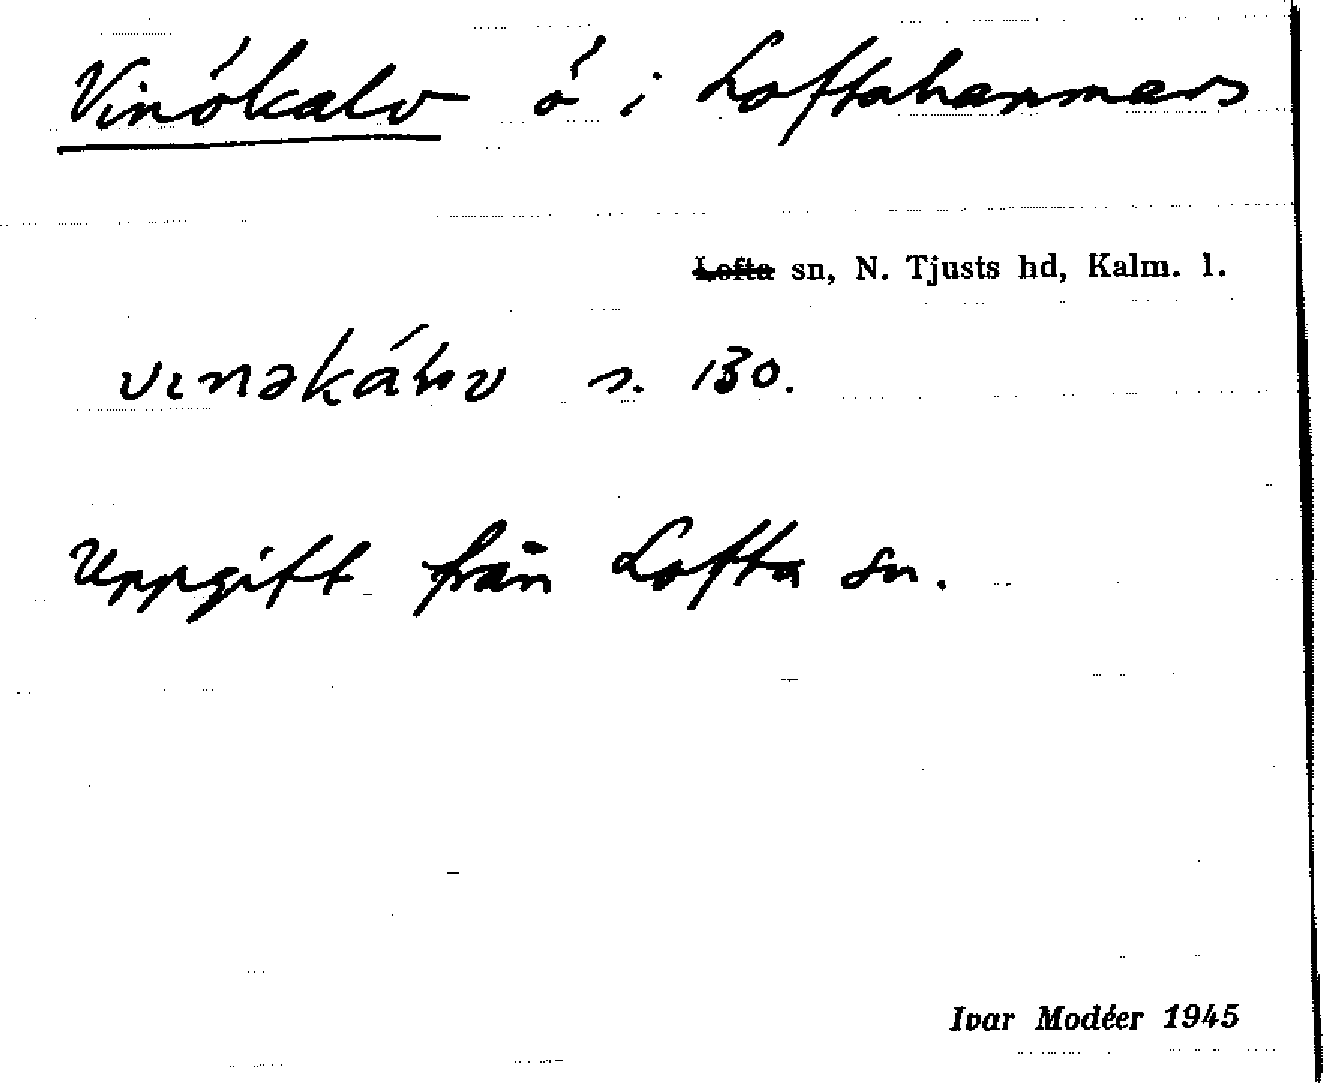 Vinökalv ö i Loftahammars
Lofta sn, N. Tjusts hd, Kalm. l.
s. 130.
Uppgift från Lofta sn.
Ivar Modéer 1945